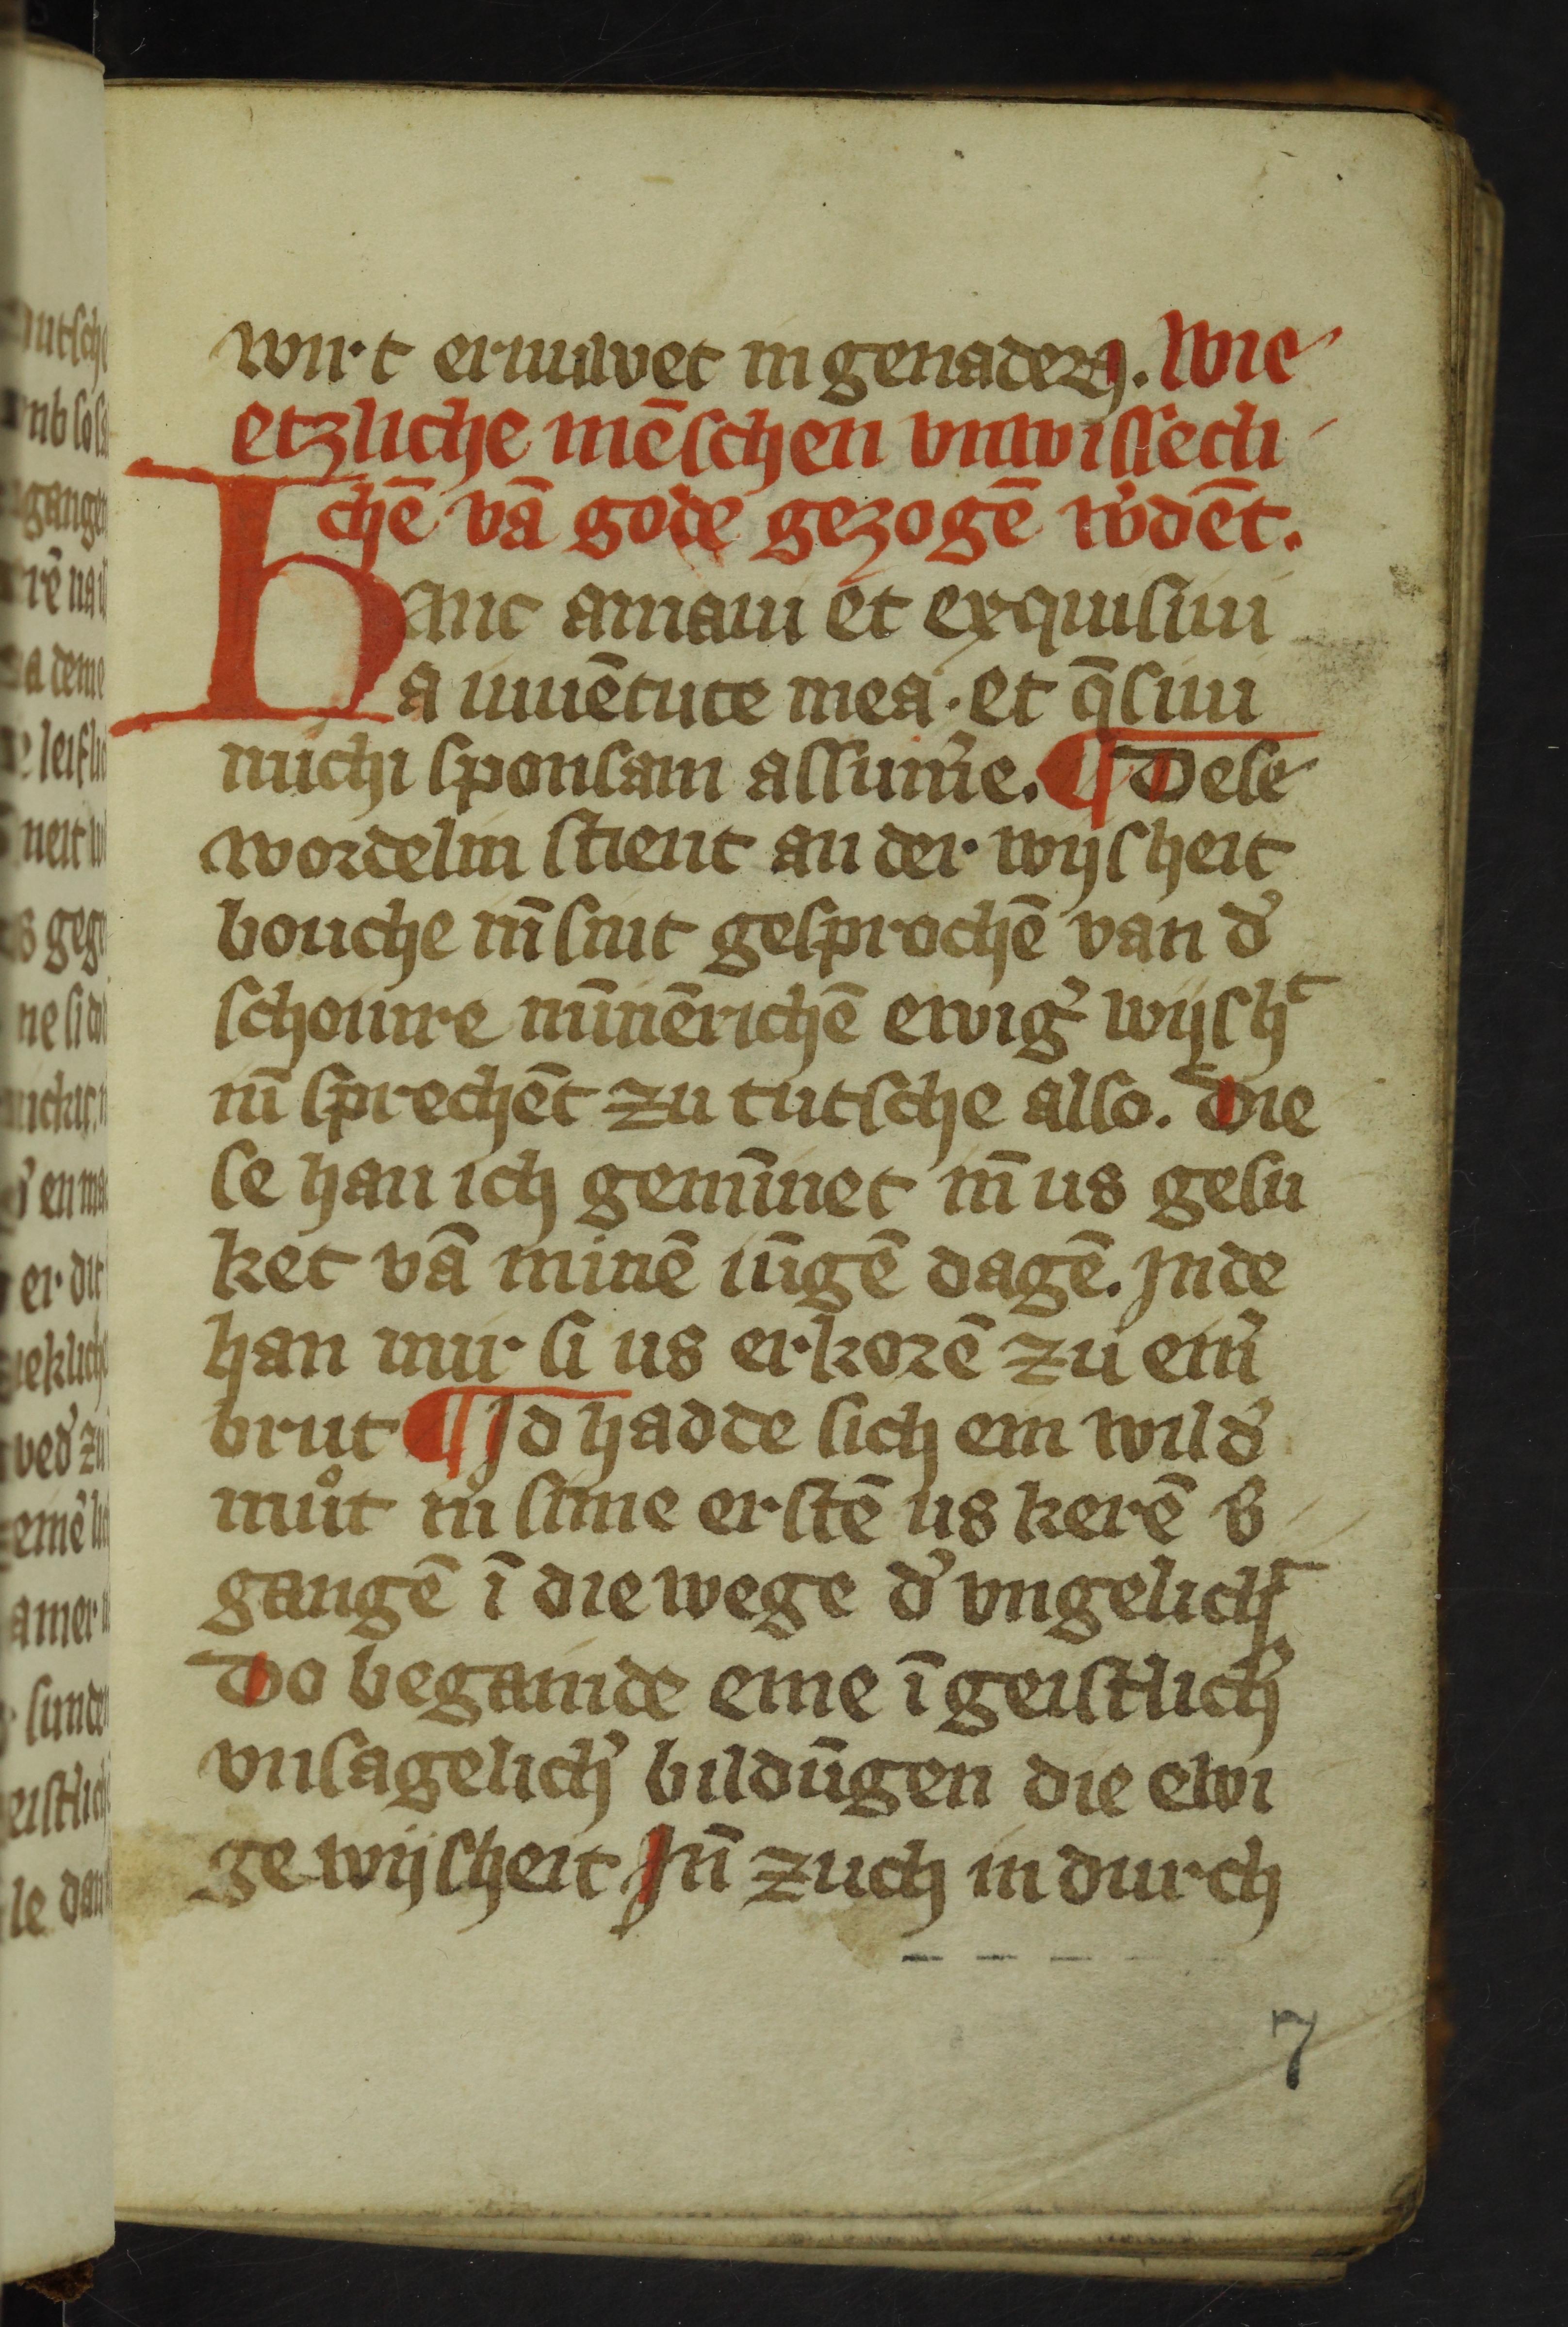 wirt erniuwet in genaden. Wie
etzliche mēschen vnwissecli
chē vā gode gezogē w'dēt.
Hanc amaui et exquisiui
a iuuētute mea. et q̄siui
michi sponsam assum'e. ¶ Dese
wordelin stient an der wijsheit
bouche in̄ sint gesprochē van d'
schoinre mīnērichē ewig' wijsh^t
in̄ sprechēt zu tutsche also. Die
se han ich gemīnet in̄ us gesu
ket vā minē iūgē dagē. Inde
han mir si us erkorē zu ein'
brut ¶ Id hadde sich ein wild'
muͦt in sime erstē us kerē v'
gangē ī die wege d' vngelich^t
Do begainde eme ī geistlich'
vnsagelich' bildūgen die ewi
ge wijsheit In̄ zuch in durch
7